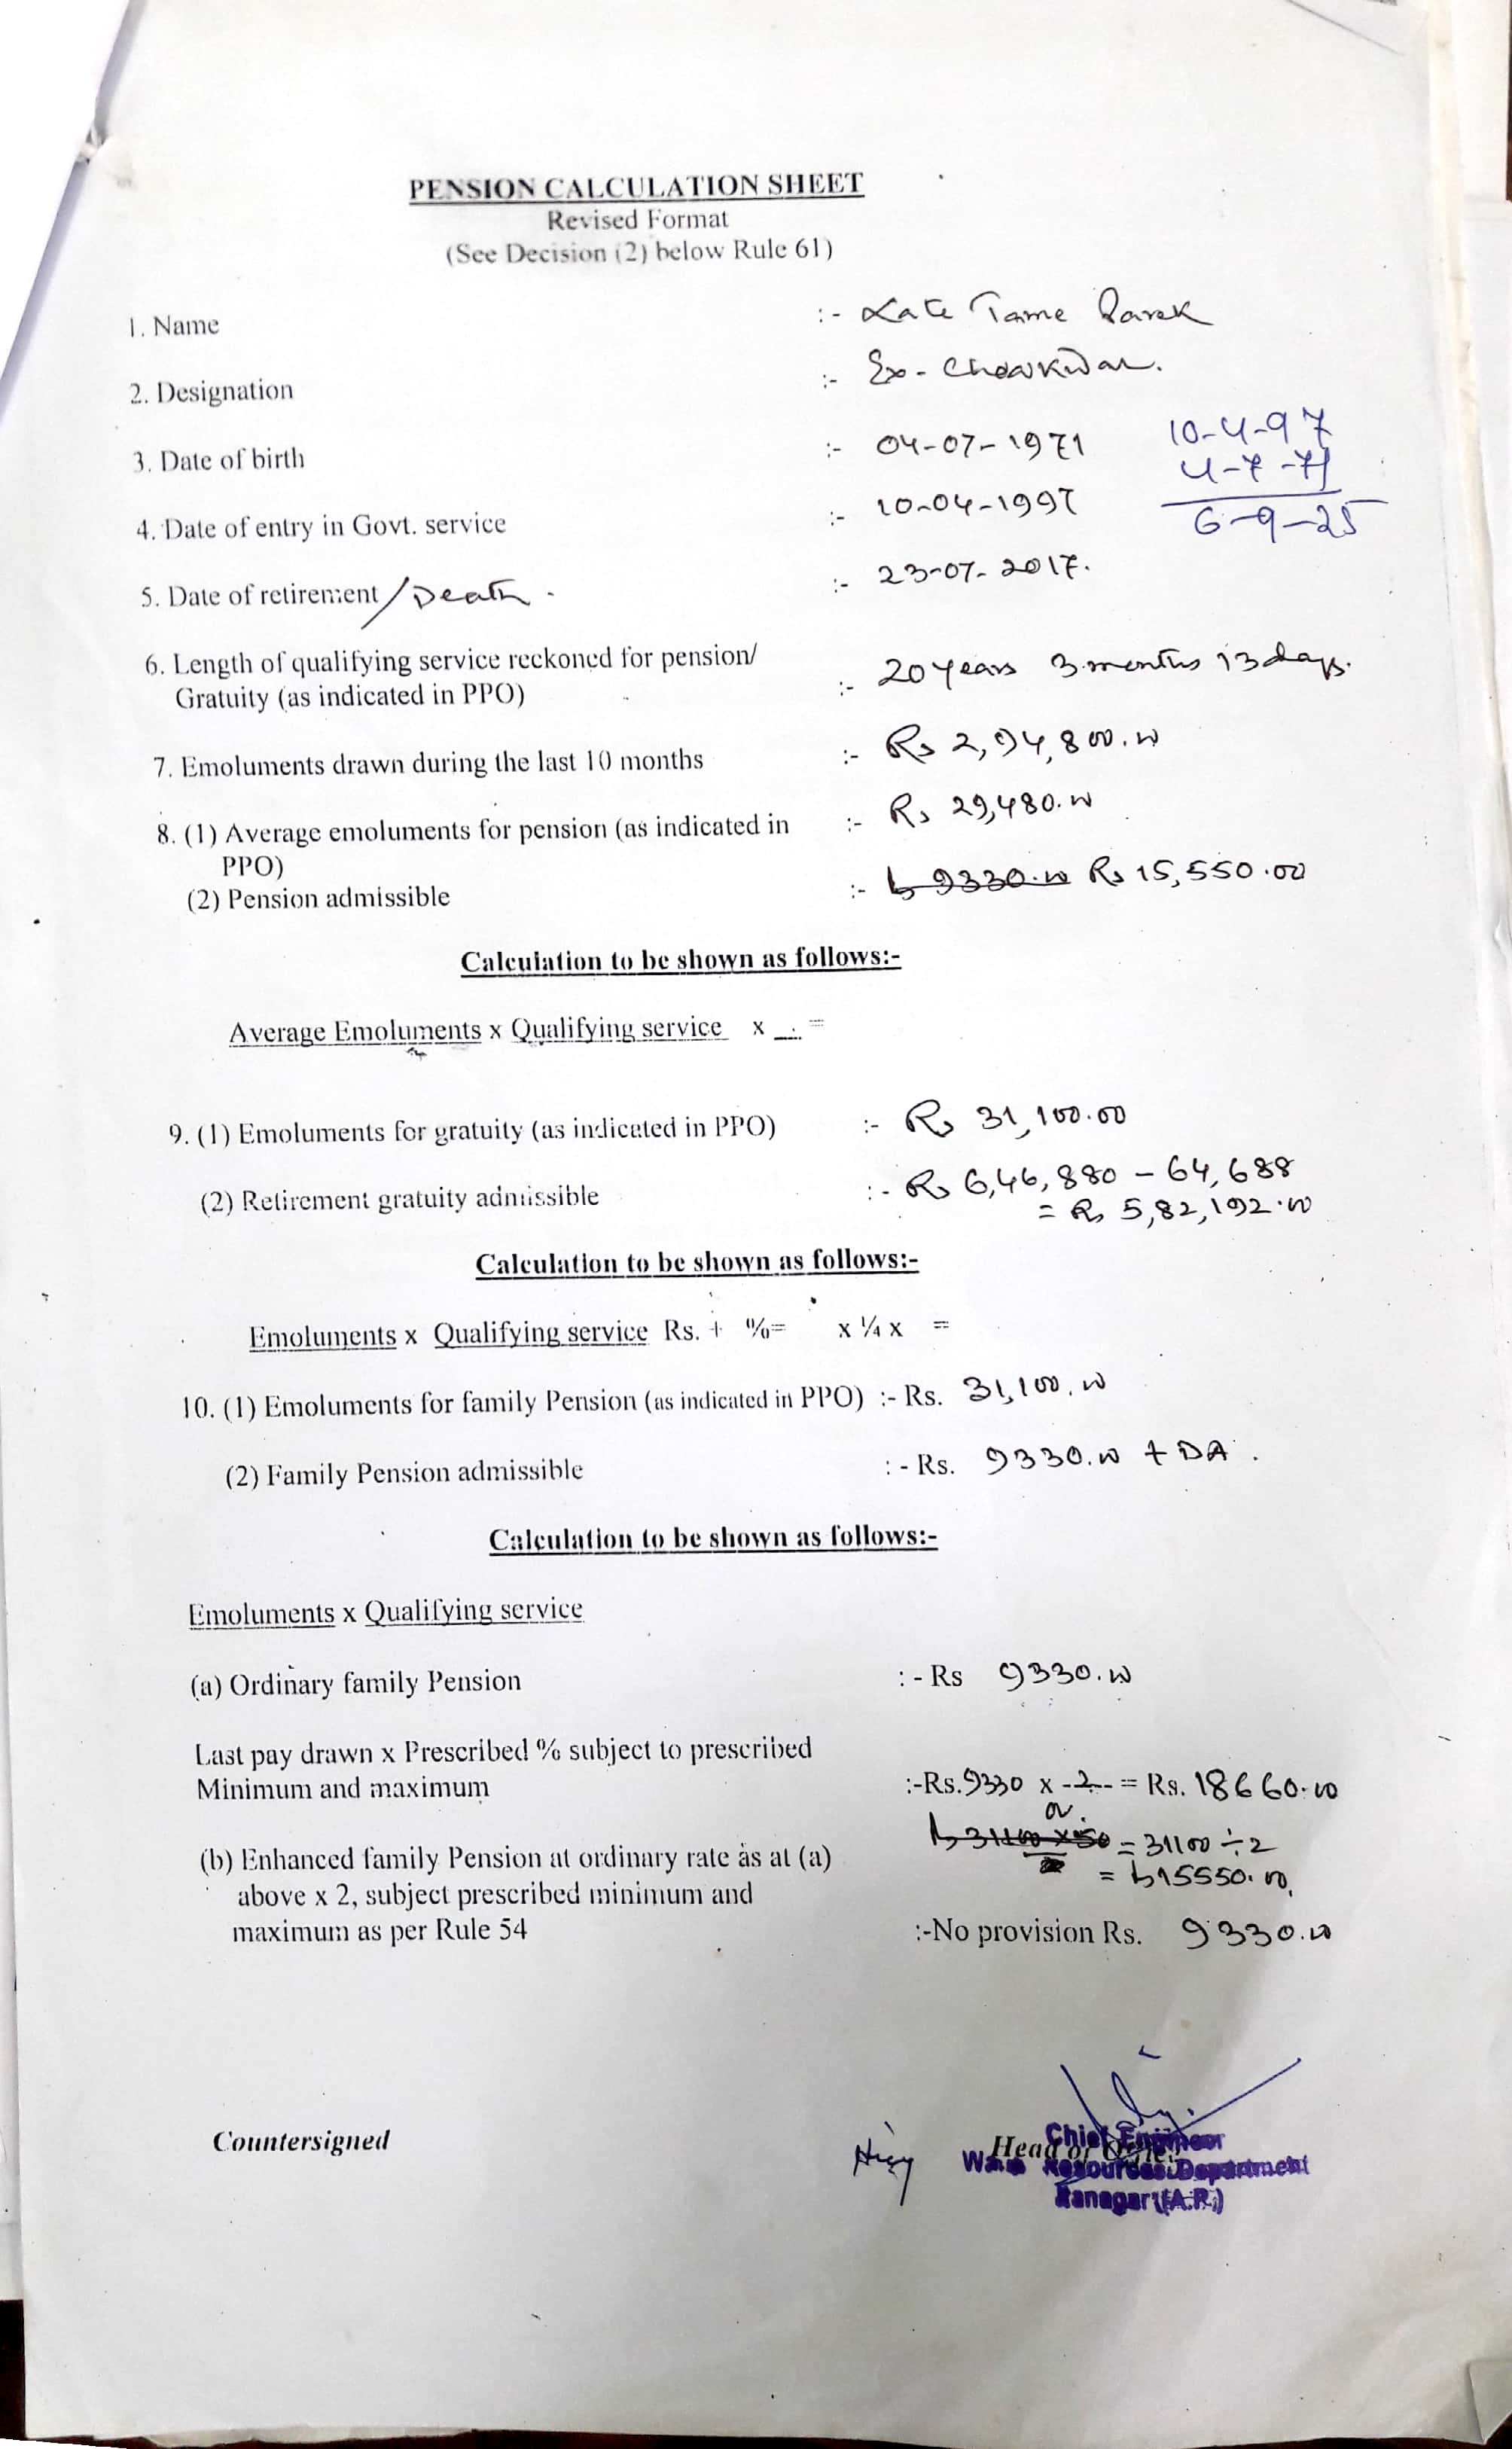 PENSION CALCULATION SHEET
Revised Format
(See Decision (2) below Rule 61)
1. Name :- Late Tame Parek
2. Designation :- Ex- Chowkidar.
3. Date of birth :- 04-07-1971
10-4-97
4-7-71
6-9-25
4. Date of entry in Govt. service :- 10-04-1997
5. Date of retirement/Death. :- 23-07-2017.
6. Length of qualifying service reckoned for pension/
Gratuity (as indicated in PPO) :- 20 years 3 months 13 days.
7. Emoluments drawn during the last 10 months :- Rs 2,94,800.00
8. (1) Average emoluments for pension (as indicated in :- Rs 29,480.00
PPO)
(2) Pension admissible :- Rs 9330.00 Rs 15,550.00
Calculation to be shown as follows:-
Average Emoluments x Qualifying service x =
9. (1) Emoluments for gratuity (as indicated in PPO) :- Rs 31,100.00
(2) Retirement gratuity admissible :- Rs 6,46,880 - 64,688
= Rs 5,82,192.00
Calculation to be shown as follows:-
Emoluments x Qualifying service Rs. + %= x ¼ x =
10. (1) Emoluments for family Pension (as indicated in PPO) :- Rs. 31,100.00
(2) Family Pension admissible :- Rs. 9330.00 + DA.
Calculation to be shown as follows:-
Emoluments x Qualifying service
(a) Ordinary family Pension :- Rs 9330.00
Last pay drawn x Prescribed % subject to prescribed
Minimum and maximum :-Rs.9330 x -2-- = Rs. 18660.00
or
Rs 31100 x 50 = 31100 ÷ 2
(b) Enhanced family Pension at ordinary rate as at (a)
= Rs 15550.00.
above x 2, subject prescribed minimum and
maximum as per Rule 54 :-No provision Rs. 9330.00
Countersigned
Head of
Chief Engineer
Water Resources Department
Itanagar (A.P.)